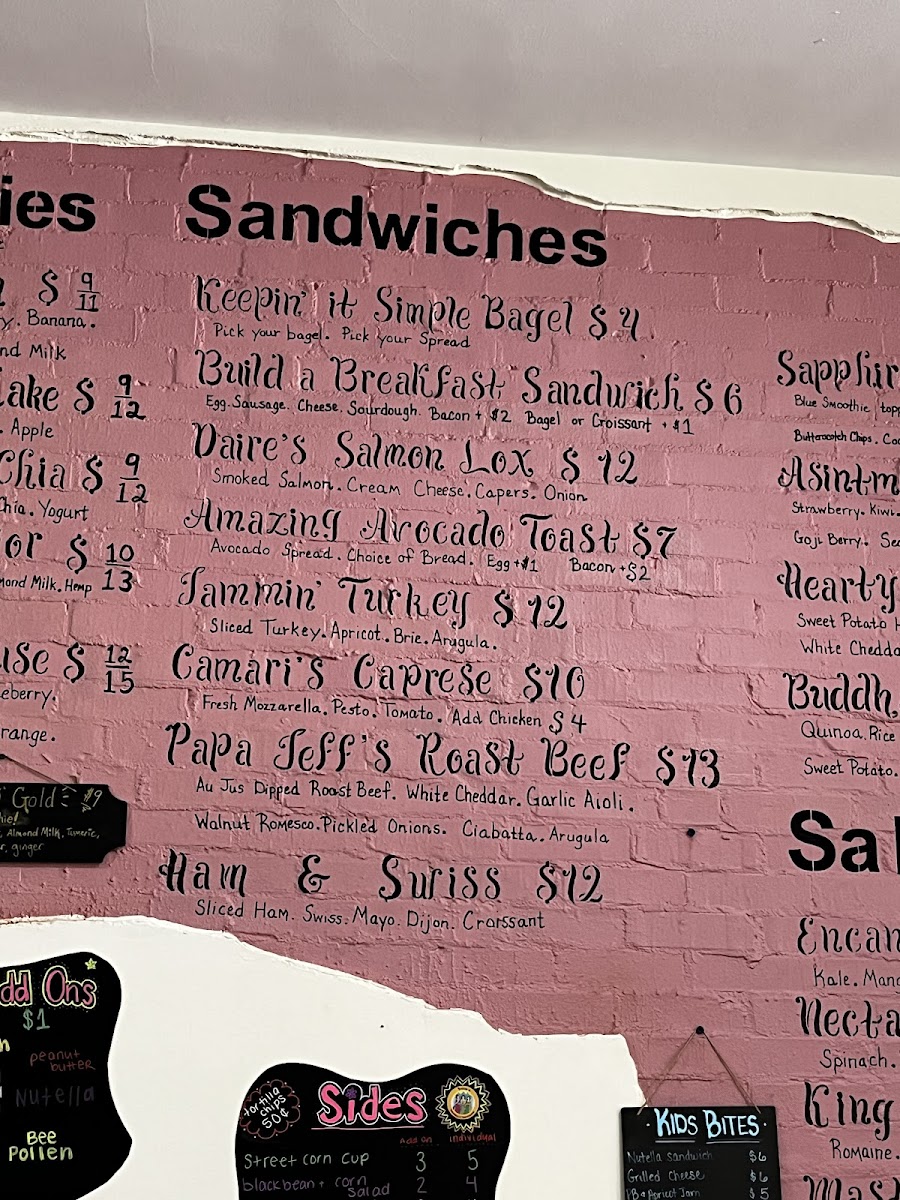 ies
$ 9/11
y. Banana.
nd Milk
ake $ 9/12
. Apple
Chia $ 9/12
hia. Yogurt
or $ 10/13
mond Milk. Hemp
use $ 12/15
eberry.
range.
Gold $9
hie!
, Almond Milk, Turmeric,
r, ginger
dd Ons
$1
peanut butter
Nutella
Bee Pollen
Sandwiches
Keepin' it Simple Bagel $4
Pick your bagel. Pick your Spread
Build a Breakfast Sandwich $6
Egg. Sausage. Cheese. Sourdough. Bacon + $2 Bagel or Croissant + $1
Daire's Salmon Lox $12
Smoked Salmon. Cream Cheese. Capers. Onion
Amazing Avocado Toast $7
Avocado Spread. Choice of Bread. Egg +$1 Bacon +$2
Jammin' Turkey $12
Sliced Turkey. Apricot. Brie. Arugula.
Camari's Caprese $10
Fresh Mozzarella. Pesto. Tomato. Add Chicken $4
Papa Jeff's Roast Beef $13
Au Jus Dipped Roast Beef. White Cheddar. Garlic Aioli.
Walnut Romesco. Pickled Onions. Ciabatta. Arugula
Ham & Swiss $12
Sliced Ham. Swiss. Mayo. Dijon. Croissant
tortilla chips 50¢
Sides
Add on individual
Street corn cup 3 5
blackbean + corn salad 2 4
Sapphir
Blue Smoothie, top
Butterscotch Chips. Coc
Asintm
Strawberry. Kiwi.
Goji Berry. See
Hearty
Sweet Potato H
White Chedda
Buddh
Quinoa. Rice
Sweet Potato.
Sal
Encan
Kale. Mand
Necta
Spinach.
King
Romaine.
Mas
Kids Bites
Nutella sandwich $6
Grilled Cheese $6
PB & Apricot Jam $5